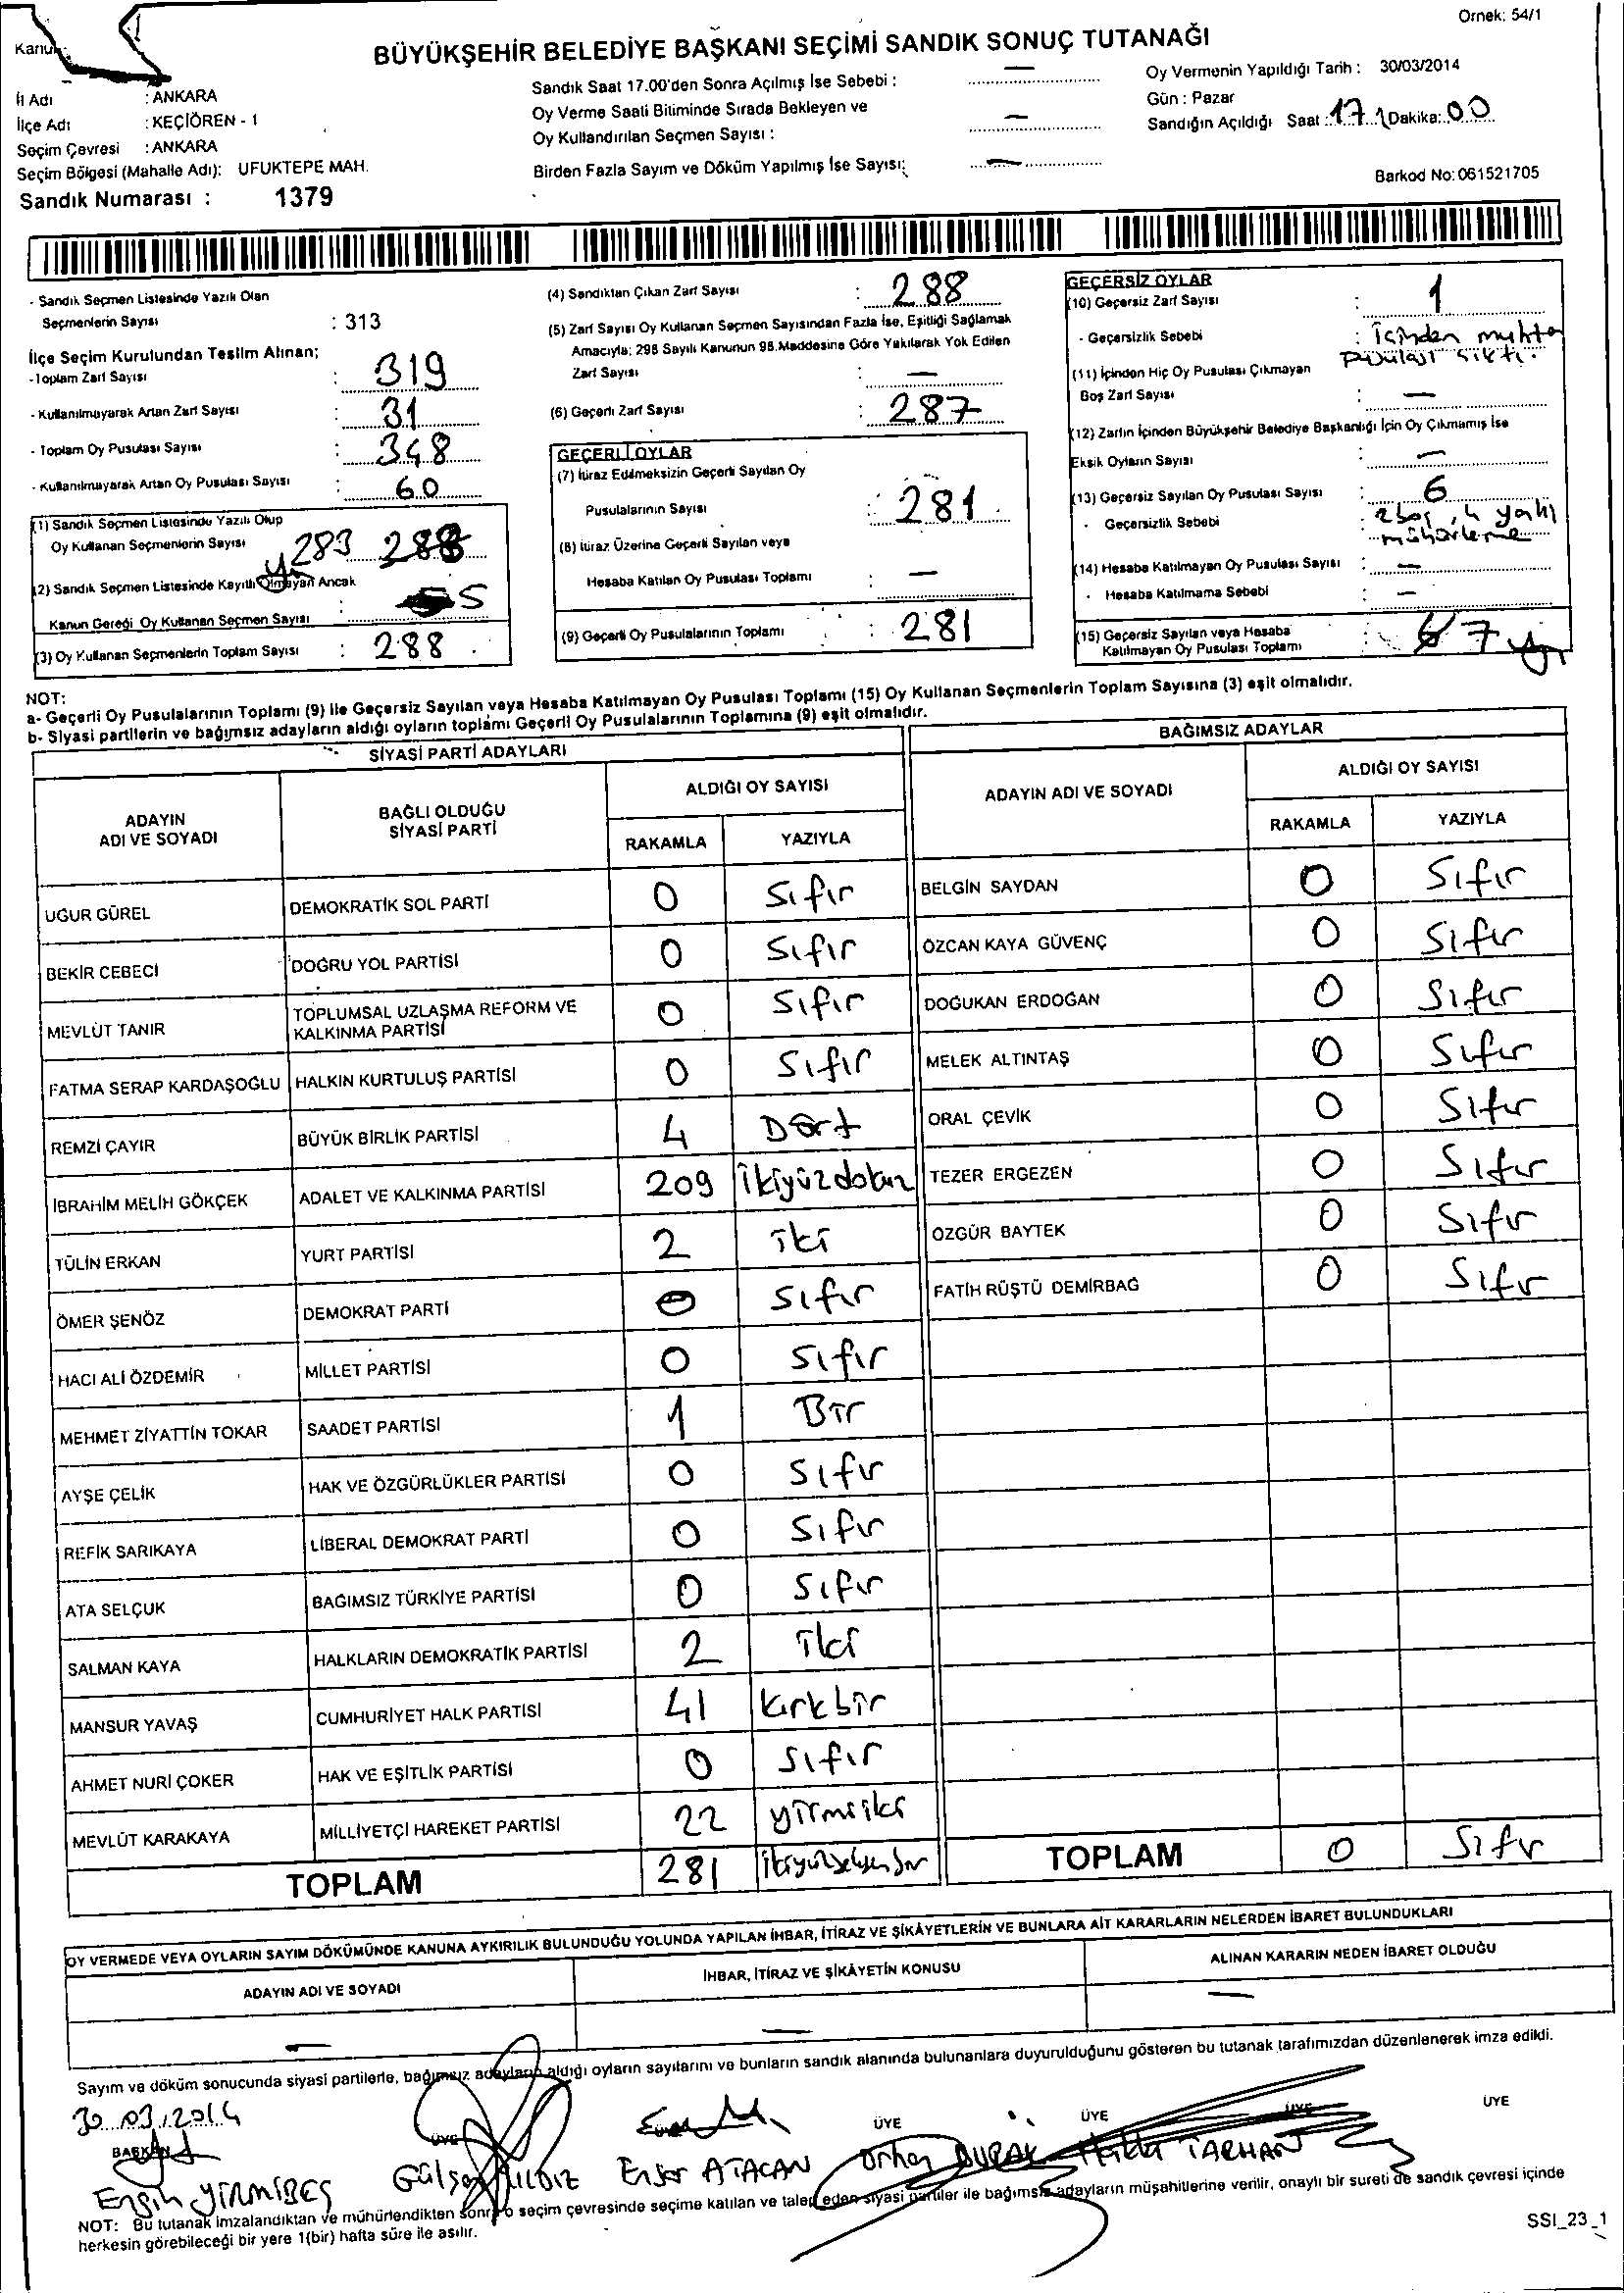 Örnek: 54/1
BÜYÜKŞEHİR BELEDİYE BAŞKANI SEÇİMİ SANDIK SONUÇ TUTANAĞI
İl Adı : ANKARA
İlçe Adı : KEÇİÖREN - 1
Seçim Çevresi : ANKARA
Seçim Bölgesi (Mahalle Adı): UFUKTEPE MAH.
Sandık Numarası : 1379
Sandık Saat 17.00'den Sonra Açılmış İse Sebebi : —
Oy Verme Saati Bitiminde Sırada Bekleyen ve
Oy Kullandırılan Seçmen Sayısı : —
Birden Fazla Sayım ve Döküm Yapılmış İse Sayısı: —
Oy Vermenin Yapıldığı Tarih : 30/03/2014
Gün : Pazar
Sandığın Açıldığı Saat : 17 Dakika: 00
Barkod No: 061521705
- Sandık Seçmen Listesinde Yazılı Olan
Seçmenlerin Sayısı : 313
İlçe Seçim Kurulundan Teslim Alınan;
- Toplam Zarf Sayısı : 319
- Kullanılmayarak Artan Zarf Sayısı : 31
- Toplam Oy Pusulası Sayısı : 348
- Kullanılmayarak Artan Oy Pusulası Sayısı : 60
(1) Sandık Seçmen Listesinde Yazılı Olup
Oy Kullanan Seçmenlerin Sayısı 283 288
(2) Sandık Seçmen Listesinde Kayıtlı Olmayan Ancak
Kanun Gereği Oy Kullanan Seçmen Sayısı : 5
(3) Oy Kullanan Seçmenlerin Toplam Sayısı : 288
(4) Sandıktan Çıkan Zarf Sayısı : 288
(5) Zarf Sayısı Oy Kullanan Seçmen Sayısından Fazla İse, Eşitliği Sağlamak
Amacıyla; 298 Sayılı Kanunun 98.Maddesine Göre Yakılarak Yok Edilen
Zarf Sayısı : —
(6) Geçerli Zarf Sayısı : 287
GEÇERLİ OYLAR
(7) İtiraz Edilmeksizin Geçerli Sayılan Oy
Pusulalarının Sayısı : 281
(8) İtiraz Üzerine Geçerli Sayılan veya
Hesaba Katılan Oy Pusulası Toplamı : —
(9) Geçerli Oy Pusulalarının Toplamı : 281
GEÇERSİZ OYLAR
(10) Geçersiz Zarf Sayısı : 1
- Geçersizlik Sebebi : İçinden muhtar
pusulası çıktı.
(11) İçinden Hiç Oy Pusulası Çıkmayan
Boş Zarf Sayısı : —
(12) Zarfın İçinden Büyükşehir Belediye Başkanlığı İçin Oy Çıkmamış İse
Eksik Oyların Sayısı : —
(13) Geçersiz Sayılan Oy Pusulası Sayısı : 6
- Geçersizlik Sebebi : 2 boş, 4
mühürleme
(14) Hesaba Katılmayan Oy Pusulası Sayısı : —
- Hesaba Katılmama Sebebi : —
(15) Geçersiz Sayılan veya Hesaba
Katılmayan Oy Pusulası Toplamı : 7
NOT:
a- Geçerli Oy Pusulalarının Toplamı (9) ile Geçersiz Sayılan veya Hesaba Katılmayan Oy Pusulası Toplamı (15) Oy Kullanan Seçmenlerin Toplam Sayısına (3) eşit olmalıdır.
b- Siyasi partilerin ve bağımsız adayların aldığı oyların toplamı Geçerli Oy Pusulalarının Toplamına (9) eşit olmalıdır.
SİYASİ PARTİ ADAYLARI
ADAYIN ADI VE SOYADI BAĞLI OLDUĞU SİYASİ PARTİ ALDIĞI OY SAYISI
RAKAMLA YAZIYLA
UĞUR GÜREL DEMOKRATİK SOL PARTİ 0 Sıfır
BEKİR CEBECİ DOĞRU YOL PARTİSİ 0 Sıfır
MEVLÜT TANIR TOPLUMSAL UZLAŞMA REFORM VE KALKINMA PARTİSİ 0 Sıfır
FATMA SERAP KARDAŞOĞLU HALKIN KURTULUŞ PARTİSİ 0 Sıfır
REMZİ ÇAYIR BÜYÜK BİRLİK PARTİSİ 4 Dört
İBRAHİM MELİH GÖKÇEK ADALET VE KALKINMA PARTİSİ 209 İkiyüzdokuz
TÜLİN ERKAN YURT PARTİSİ 2 iki
ÖMER ŞENÖZ DEMOKRAT PARTİ 0 Sıfır
HACI ALİ ÖZDEMİR MİLLET PARTİSİ 0 Sıfır
MEHMET ZİYATTİN TOKAR SAADET PARTİSİ 1 Bir
AYŞE ÇELİK HAK VE ÖZGÜRLÜKLER PARTİSİ 0 Sıfır
REFİK SARIKAYA LİBERAL DEMOKRAT PARTİ 0 Sıfır
ATA SELÇUK BAĞIMSIZ TÜRKİYE PARTİSİ 0 Sıfır
SALMAN KAYA HALKLARIN DEMOKRATİK PARTİSİ 2 iki
MANSUR YAVAŞ CUMHURİYET HALK PARTİSİ 41 Kırkbir
AHMET NURİ ÇOKER HAK VE EŞİTLİK PARTİSİ 0 Sıfır
MEVLÜT KARAKAYA MİLLİYETÇİ HAREKET PARTİSİ 22 yirmiiki
TOPLAM 281 ikiyüzseksenbir
BAĞIMSIZ ADAYLAR
ADAYIN ADI VE SOYADI ALDIĞI OY SAYISI
RAKAMLA YAZIYLA
BELGİN SAYDAN 0 Sıfır
ÖZCAN KAYA GÜVENÇ 0 Sıfır
DOĞUKAN ERDOĞAN 0 Sıfır
MELEK ALTINTAŞ 0 Sıfır
ORAL ÇEVİK 0 Sıfır
TEZER ERGEZEN 0 Sıfır
ÖZGÜR BAYTEK 0 Sıfır
FATİH RÜŞTÜ DEMİRBAĞ 0 Sıfır
TOPLAM 0 Sıfır
OY VERMEDE VEYA OYLARIN SAYIM DÖKÜMÜNDE KANUNA AYKIRILIK BULUNDUĞU YOLUNDA YAPILAN İHBAR, İTİRAZ VE ŞİKÂYETLERİN VE BUNLARA AİT KARARLARIN NELERDEN İBARET BULUNDUKLARI
ADAYIN ADI VE SOYADI İHBAR, İTİRAZ VE ŞİKÂYETİN KONUSU ALINAN KARARIN NEDEN İBARET OLDUĞU
— — —
Sayım ve döküm sonucunda siyasi partilerle, bağımsız adayların aldığı oyların sayılarını ve bunların sandık alanında bulunanlara duyurulduğunu gösteren bu tutanak tarafımızdan düzenlenerek imza edildi.
30.03.2014
BAŞKAN ÜYE ÜYE ÜYE ÜYE ÜYE ÜYE
Engin YİRMİBEŞ Gülşen YILDIZ Enser ATACAN Orhan DURAK Hakkı TARHAN
NOT: Bu tutanak imzalandıktan ve mühürlendikten sonra o seçim çevresinde seçime katılan ve talep eden siyasi partiler ile bağımsız adayların müşahitlerine verilir, onaylı bir sureti de sandık çevresi içinde
herkesin görebileceği bir yere 1(bir) hafta süre ile asılır.
SSI_23_1